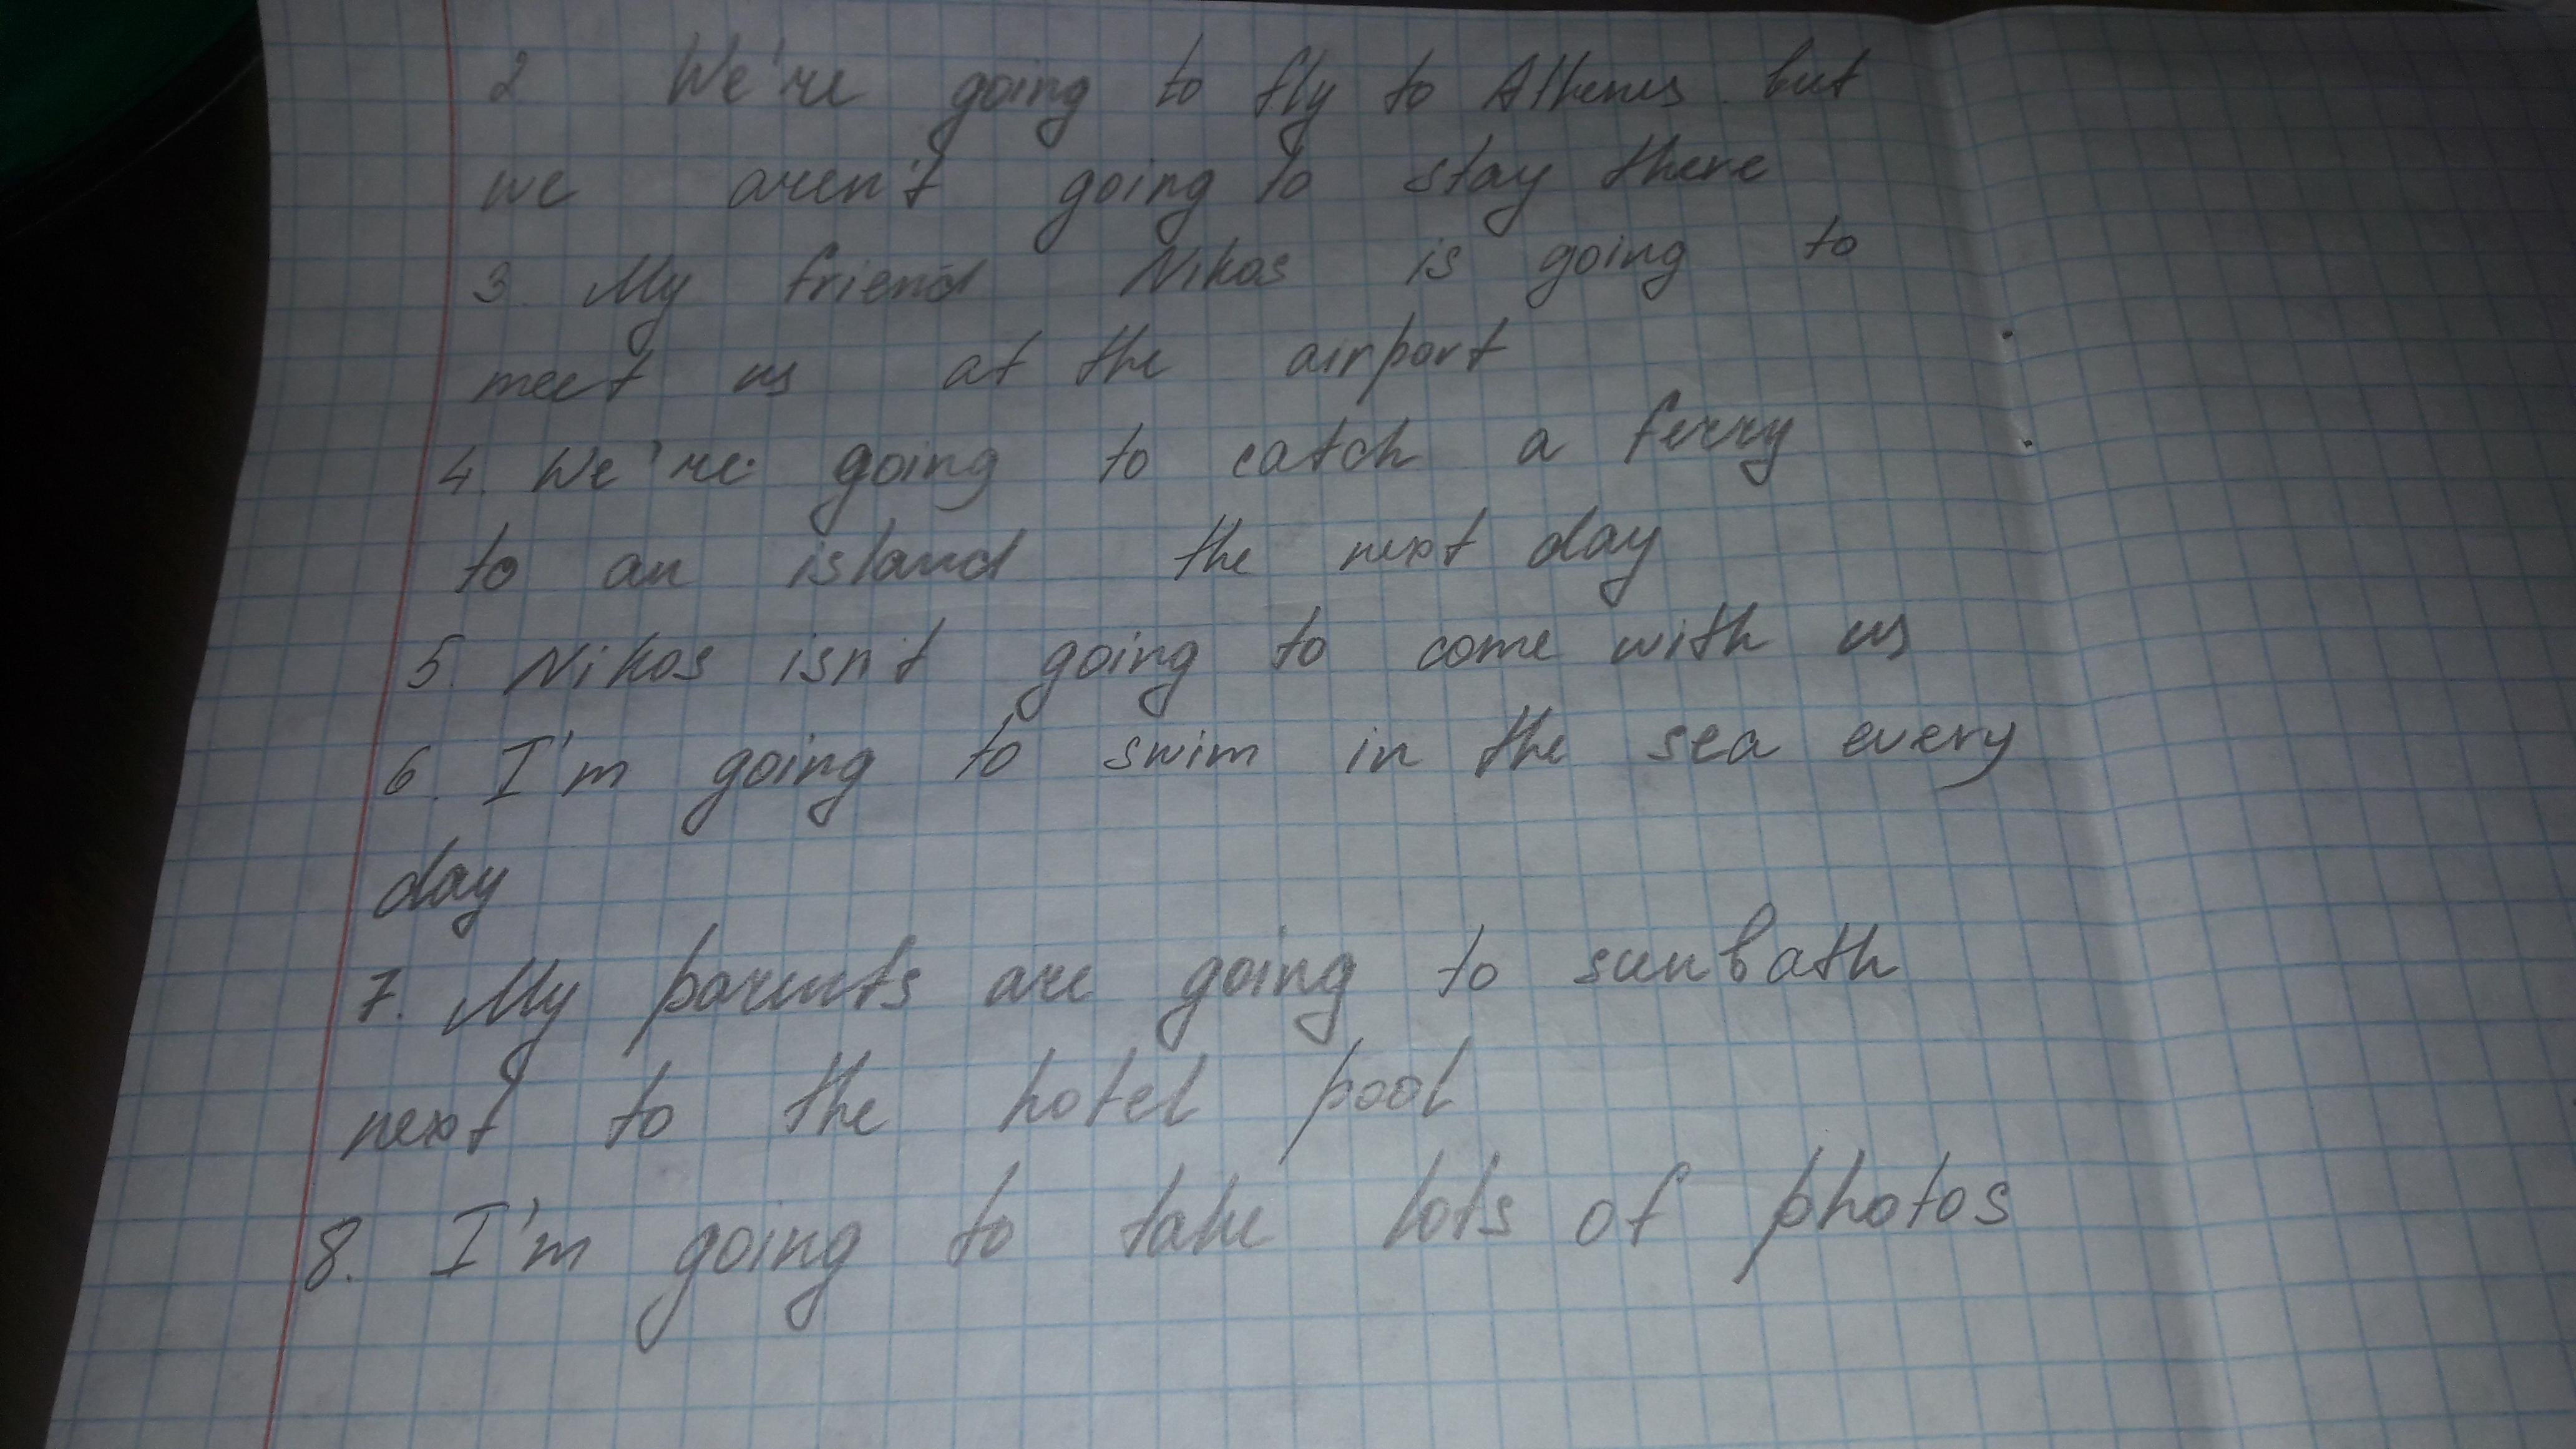 2 We're going to fly to Athens but
we aren't going to stay there
3. My friend Nikos is going to
meet us at the airport
4. We're going to catch a ferry
to an island the next day
5. Nikos isn't going to come with us
6. I'm going to swim in the sea every
day
7. My parents are going to sunbath
next to the hotel pool
8. I'm going to take lots of photos